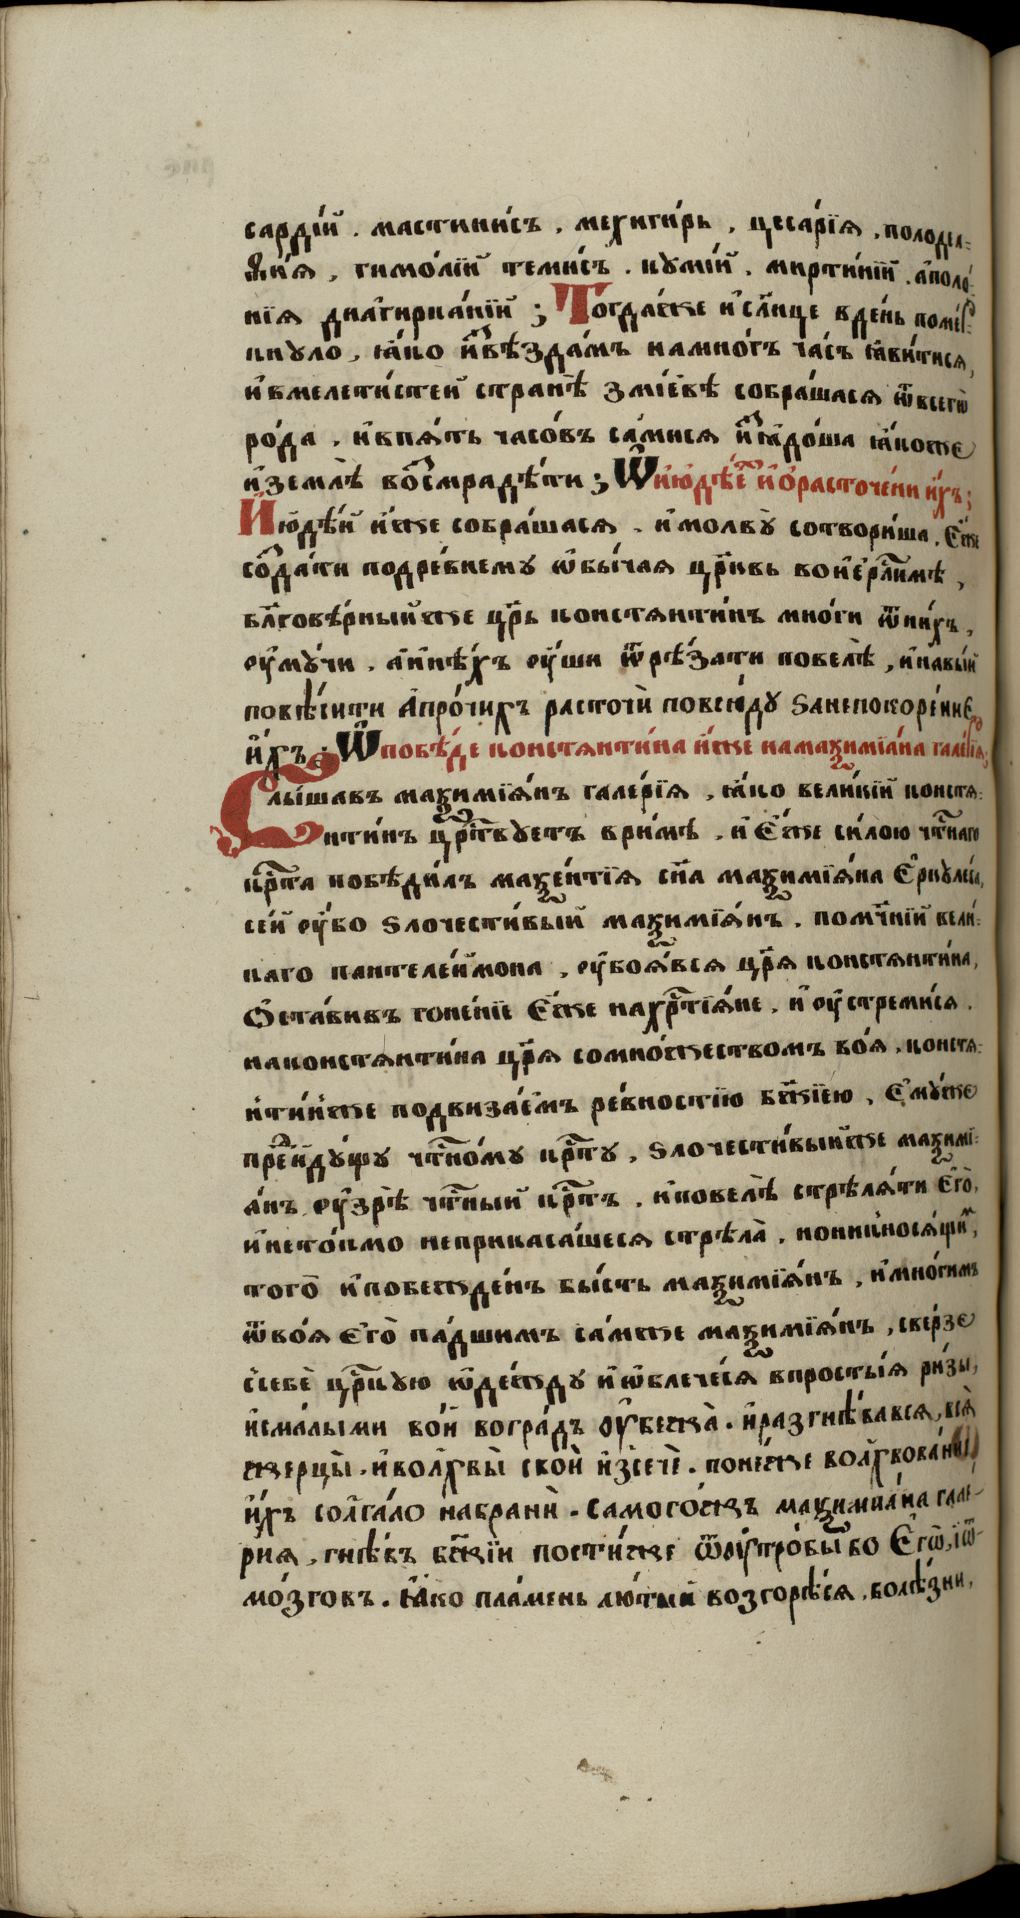 сардїй . мастинисъ . мехигирь , цесарїѧ , полодел-
ѳиѧ , гимолїй темисъ . кумїй . миртинїй . аполо-
нїѧ диагирканїй ; Тогдаже и слн҃це вдень помер-
кнуло , ꙗко и ꙁвѣздамъ намногъ часъ ꙗвитисѧ ,
ивмелетистей странѣ змїевѣ собрашасѧ ѿвсего
рода . ивпѧть часовъ самисѧ иꙗдоша ꙗкоже
иземлѣ воꙁсмрадѣти ; Ѿ июдѣехъ иѡрасточении ихъ ;
Июдѣй иже собрашасѧ . имолву сотвориша , Еже
создати подревнему ѡбычаѧ црк҃вь воиерл҃имѣ ,
бл҃говѣрныйже цр҃ь константинъ многи ѿнихъ ,
оумучи . аинѣхъ оуши ѿрѣзати повелѣ , инавыи
повѣсити Апрочихъ расточи повсюду ѕанепокоренїе
ихъ : Ѡ побѣде константина иже намаѯимїана галерїѧ ;
Слышавъ маѯимїѧнъ галерїѧ , ꙗко великїй конста-
нтинъ црс҃твуетъ вримѣ . и Еже силою чт҃наго
крс҃та побѣдилъ маѯентїѧ сн҃а маѯимїѧна Еркулїѧ ,
сей оубо ѕлочестивый маѯимїѧнъ . помч҃нїй вели-
каго пантелеймона , оубоѧвсѧ цр҃ѧ константина ,
Ѡставивъ гоненїе Еже нахрс҃тїѧне . и оустремисѧ .
наконстантина цр҃ѧ сомножествомъ воѧ . конста-
нтинже подвизаемъ ревностїю бж҃їею , Емуже
преидущу чт҃ному крс҃ту , ѕлочестивыйже маѯимї-
анъ оузрѣ чт҃ный крс҃тъ . иповелѣ стрѣлѧти Его ,
инетокмо неприкасашесѧ стрѣла , нониносѧщимъ
того иповежденъ бысть маѯимїѧнъ , имногимъ
ѿвоѧ Его падшимъ самже маѯимїѧнъ , сверзе
ссебе црс҃кую ѡдежду иѡблечесѧ впростыѧ ризы ,
исмалыми вои воградъ оубежа . иразгнѣвавсѧ , всѧ
жерцы . иволхвы своѝ изсече . понеже волхвованїе
ихъ солгало набрани . самогожъ маѯимиана гале-
риѧ , гнѣвъ бж҃їи постиже ѿоутробы бо Егѡ , иѿ
мозговъ . ꙗко пламень лютыи возгорѣсѧ . болѣзни ,